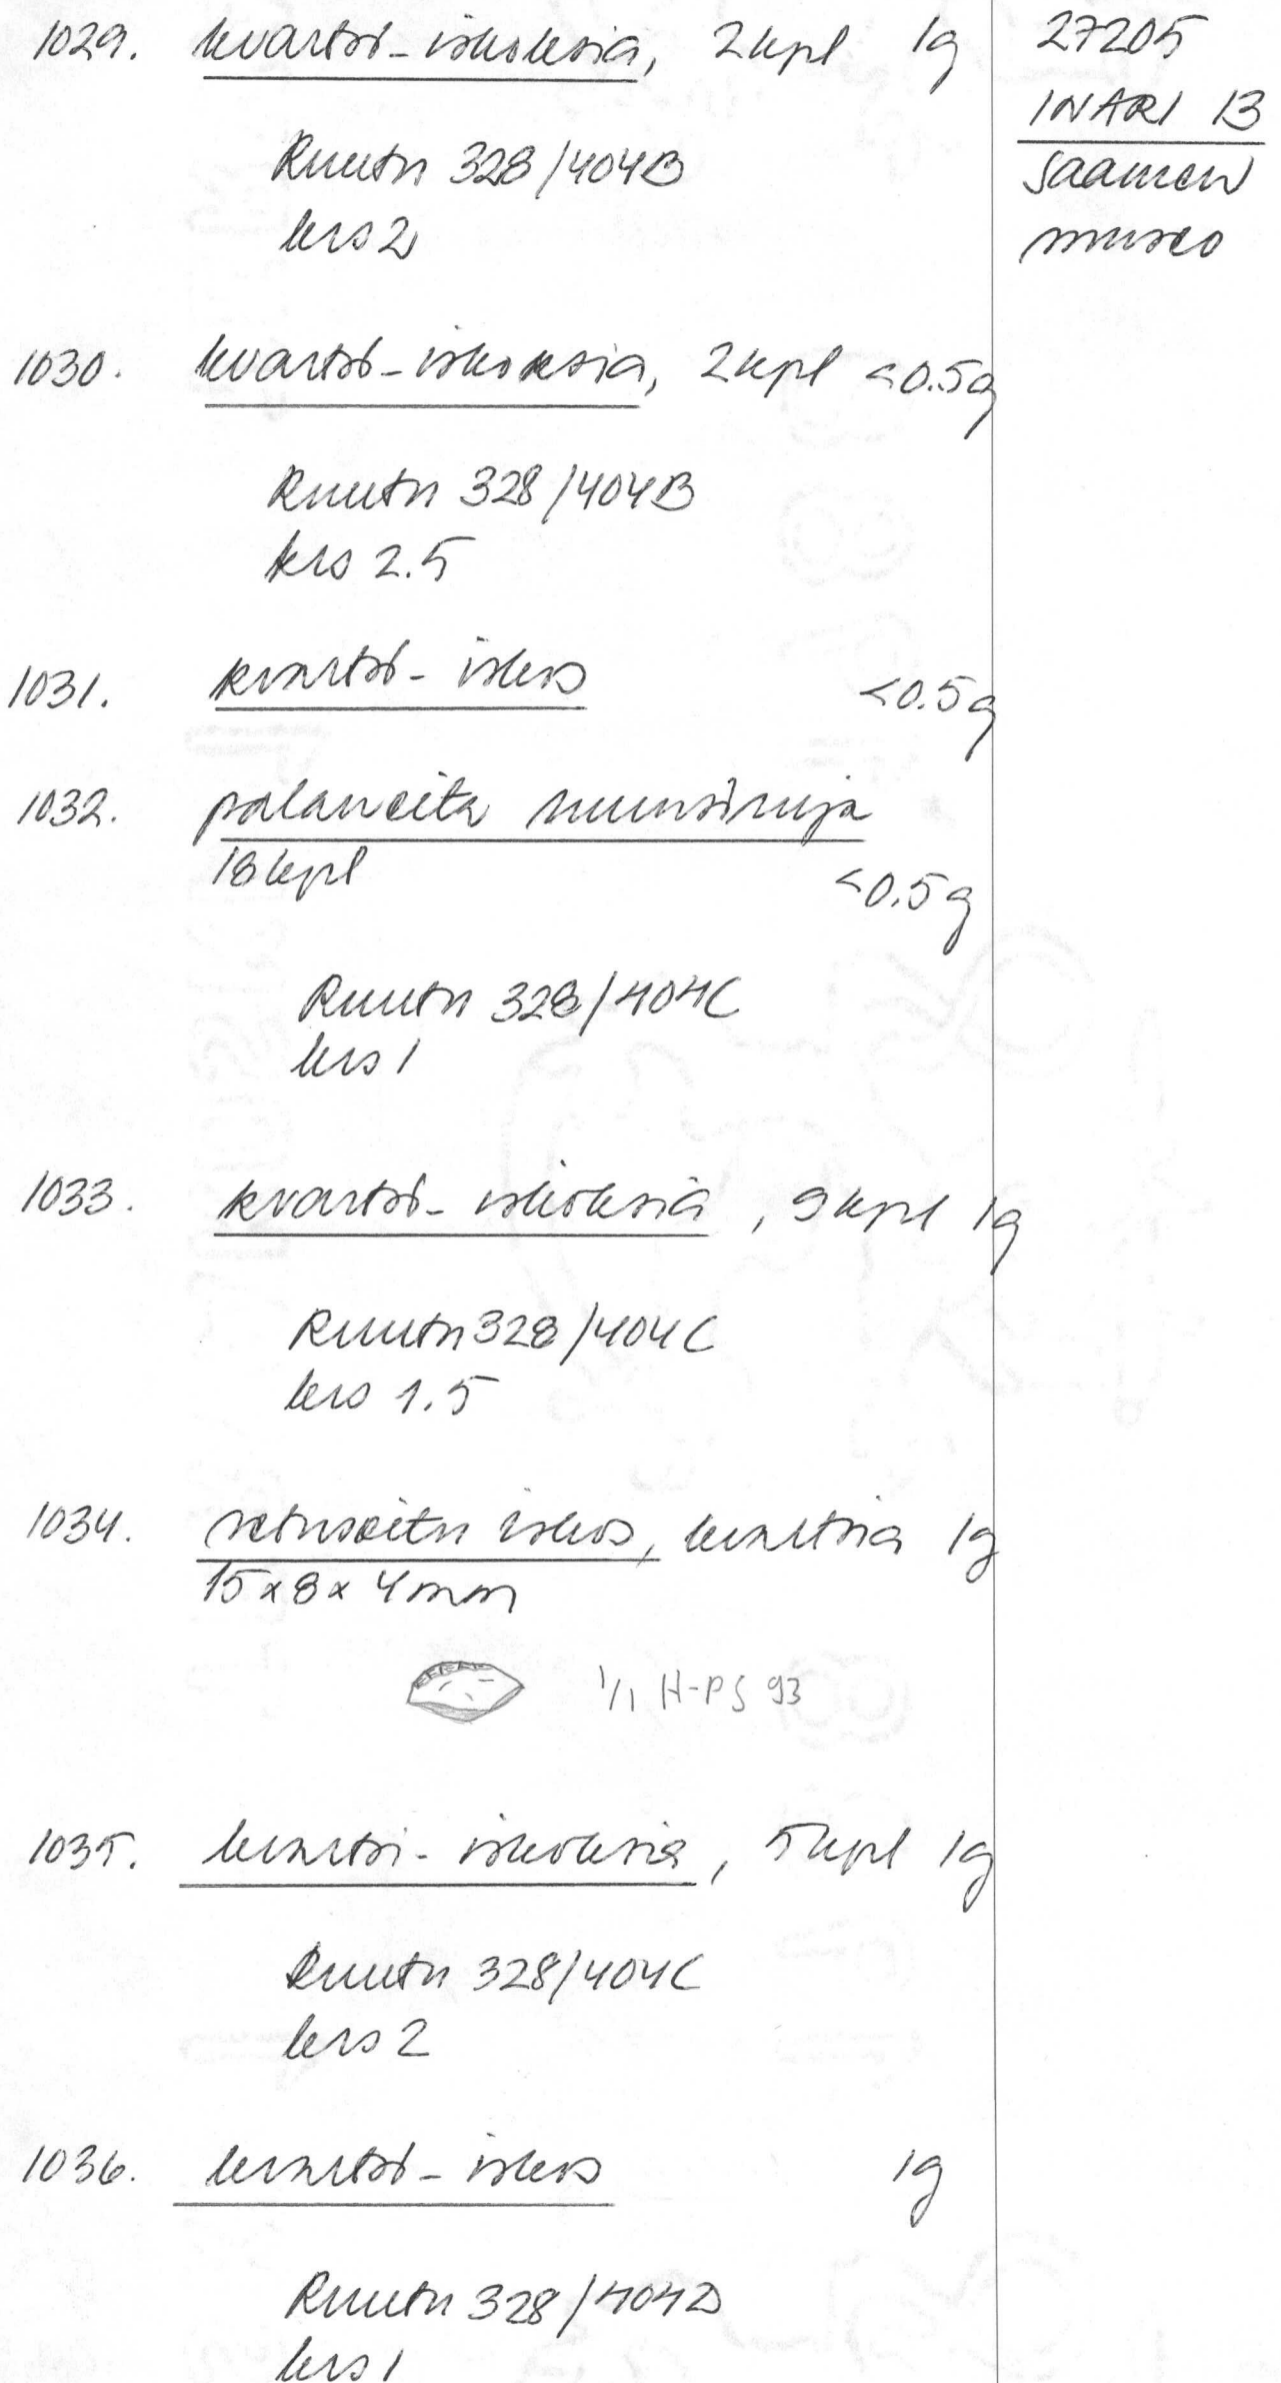 1029. kvartsi-iskoksia, 2kpl 1g
27205
INARI 13
Saamen
museo
Ruutu 328/404B
krs 2
1030. kvartsi-iskoksia, 2kpl <0.5g
Ruutu 328/404B
krs 2.5
1031. kvartsi-iskos <0.5g
1032. palaneita luunsiruja
18kpl <0.5g
Ruutu 328/404C
krs 1
1033. kvartsi-iskoksia, 9kpl 1g
Ruutu 328/404C
krs 1.5
1034. retusoitu iskos, kvartsia 1g
15x8x4mm
1/1 H-PS 93
1035. kvartsi-iskoksia, 5kpl 1g
Ruutu 328/404C
krs 2
1036. kvartsi-iskos 1g
Ruutu 328/404D
krs 1